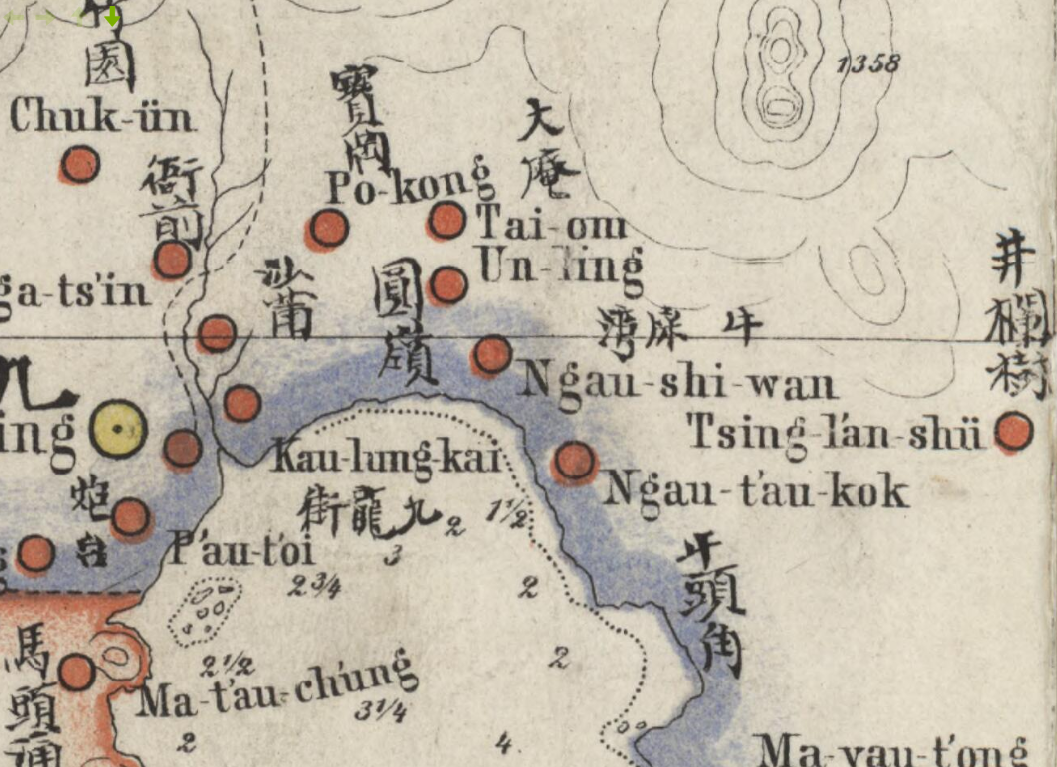 園
Chuk-ün
衙前
寶岡
Po-kong
大庵
Tai-om
Un-ling
圓嶺
沙莆
1358
井欄樹
牛屎湾
Ngau-shi-wan
Tsing-lán-shü
九
ing
Kau-lung-kai
九龍街
Ngau-t'au-kok
牛頭角
炮台
P'au-t'oi
2
1½
3
2¾
2
2½
2
馬頭涌
Ma-t'au-ch'ung
3¼
2
4
Ma-yau-t'ong
ga-ts'in